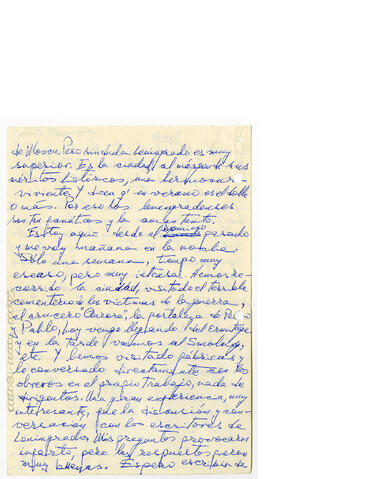 de Moscú. Pero sin duda Leningrado es muy
superior. Es la ciudad, al márgen de sus
méritos históricos, una hermosura
viviente. Y dicen q' en verano es el doble
o más. Por eso los leningradenses
son tan fanáticos y la aman tanto.
Estoy aquí desde el Domingo pasado
y me voy mañana en la noche.
Sólo una semana, tiempo muy
escaso, pero muy intenso. Hemos re-
corrido la ciudad, visitado el terrible
cementerio de las víctimas de la guerra,
el crucero "Aurora", la fortaleza de Pedro
y Pablo, hoy vengo llegando del Ermitage
y en la tarde vamos al Smolny,
etc. Y hemos visitado fábricas y
he conversado directamente con los
obreros en el propio trabajo, nada de
dirigentes. Una gran experiencia, muy
interesante, fue la discusión y con-
versación con los escritores de
Leningrado. Mis preguntas provocaron
infarto, pero las respuestas fueron
muy buenas. Espero escribir de